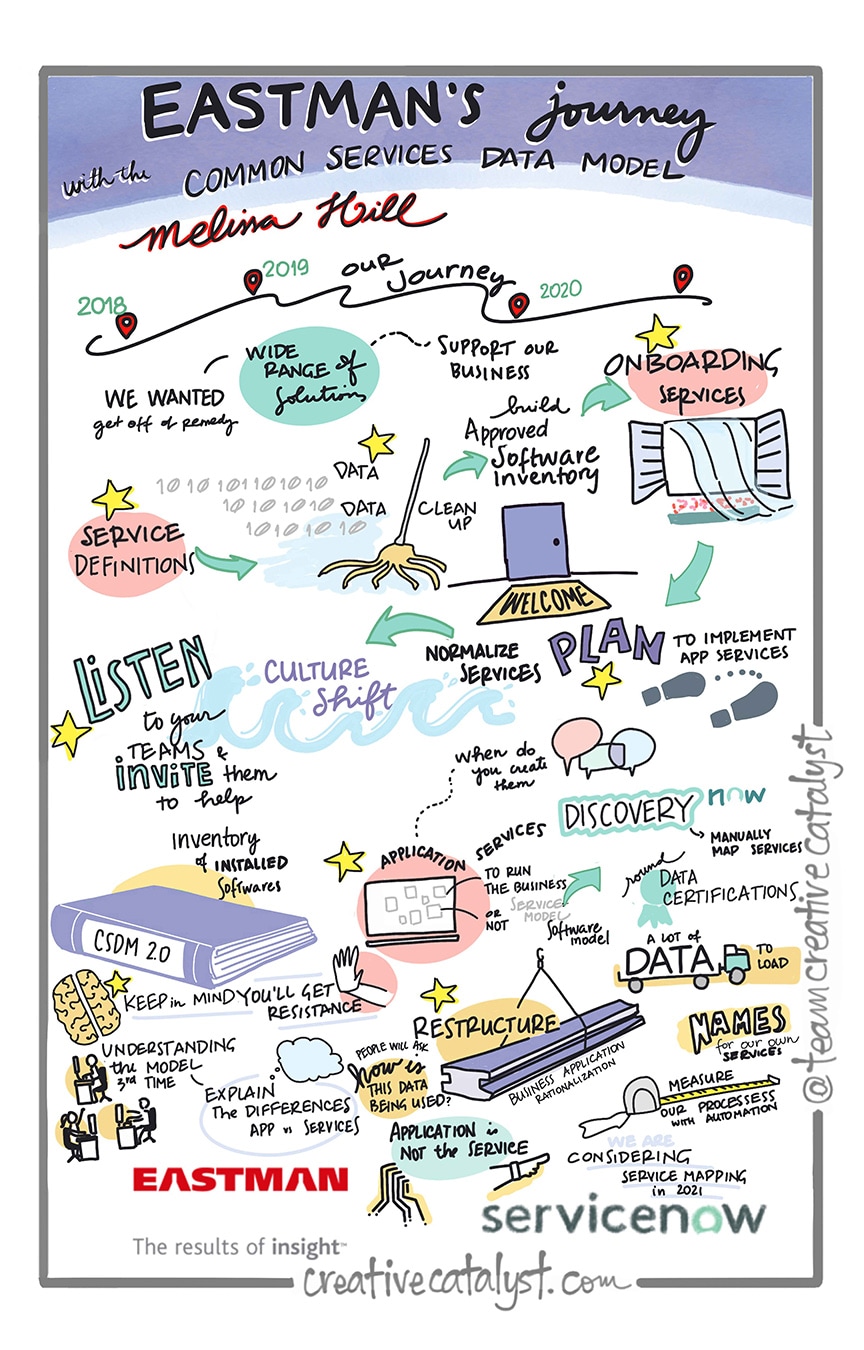 EASTMAN'S journey
with the COMMON SERVICES DATA MODEL
Melissa Hill
2018
2019
our Journey
2020
WE WANTED
get off of remedy
WIDE
RANGE of
Solutions
SUPPORT OUR
BUSINESS
ONBOARDING
SERVICES
build
Approved
Software
Inventory
10 10 1011010 10
DATA
10 10 10 10
DATA
10 10 10 10
CLEAN
UP
SERVICE
DEFINITIONS
WELCOME
NORMALIZE
SERVICES
PLAN
TO IMPLEMENT
APP SERVICES
CULTURE
Shift
LISTEN
to your
TEAMS &
INVITE them
to help
when do
you create
them
DISCOVERY now
MANUALLY
MAP SERVICES
Inventory
of INSTALLED
Softwares
CSDM 2.0
APPLICATION
SERVICES
TO RUN
THE BUSINESS
OR
NOT
SERVICE
MODEL
Software
model
round
DATA
CERTIFICATIONS
A LOT of
DATA
TO
LOAD
KEEP in MIND YOU'LL GET
RESISTANCE
RESTRUCTURE
BUSINESS APPLICATION
RATIONALIZATION
NAMES
for our own
SERVICES
UNDERSTANDING
the MODEL
3rd TIME
EXPLAIN
The DIFFERENCES
APP vs SERVICES
PEOPLE WILL ASK
how is
THIS DATA
BEING USED?
MEASURE
OUR PROCESSESS
WITH AUTOMATION
APPLICATION is
NOT the SERVICE
WE ARE
CONSIDERING
SERVICE MAPPING
in 2021
EASTMAN
The results of insight™
servicenow
creativecatalyst.com
@teamcreativecatalyst